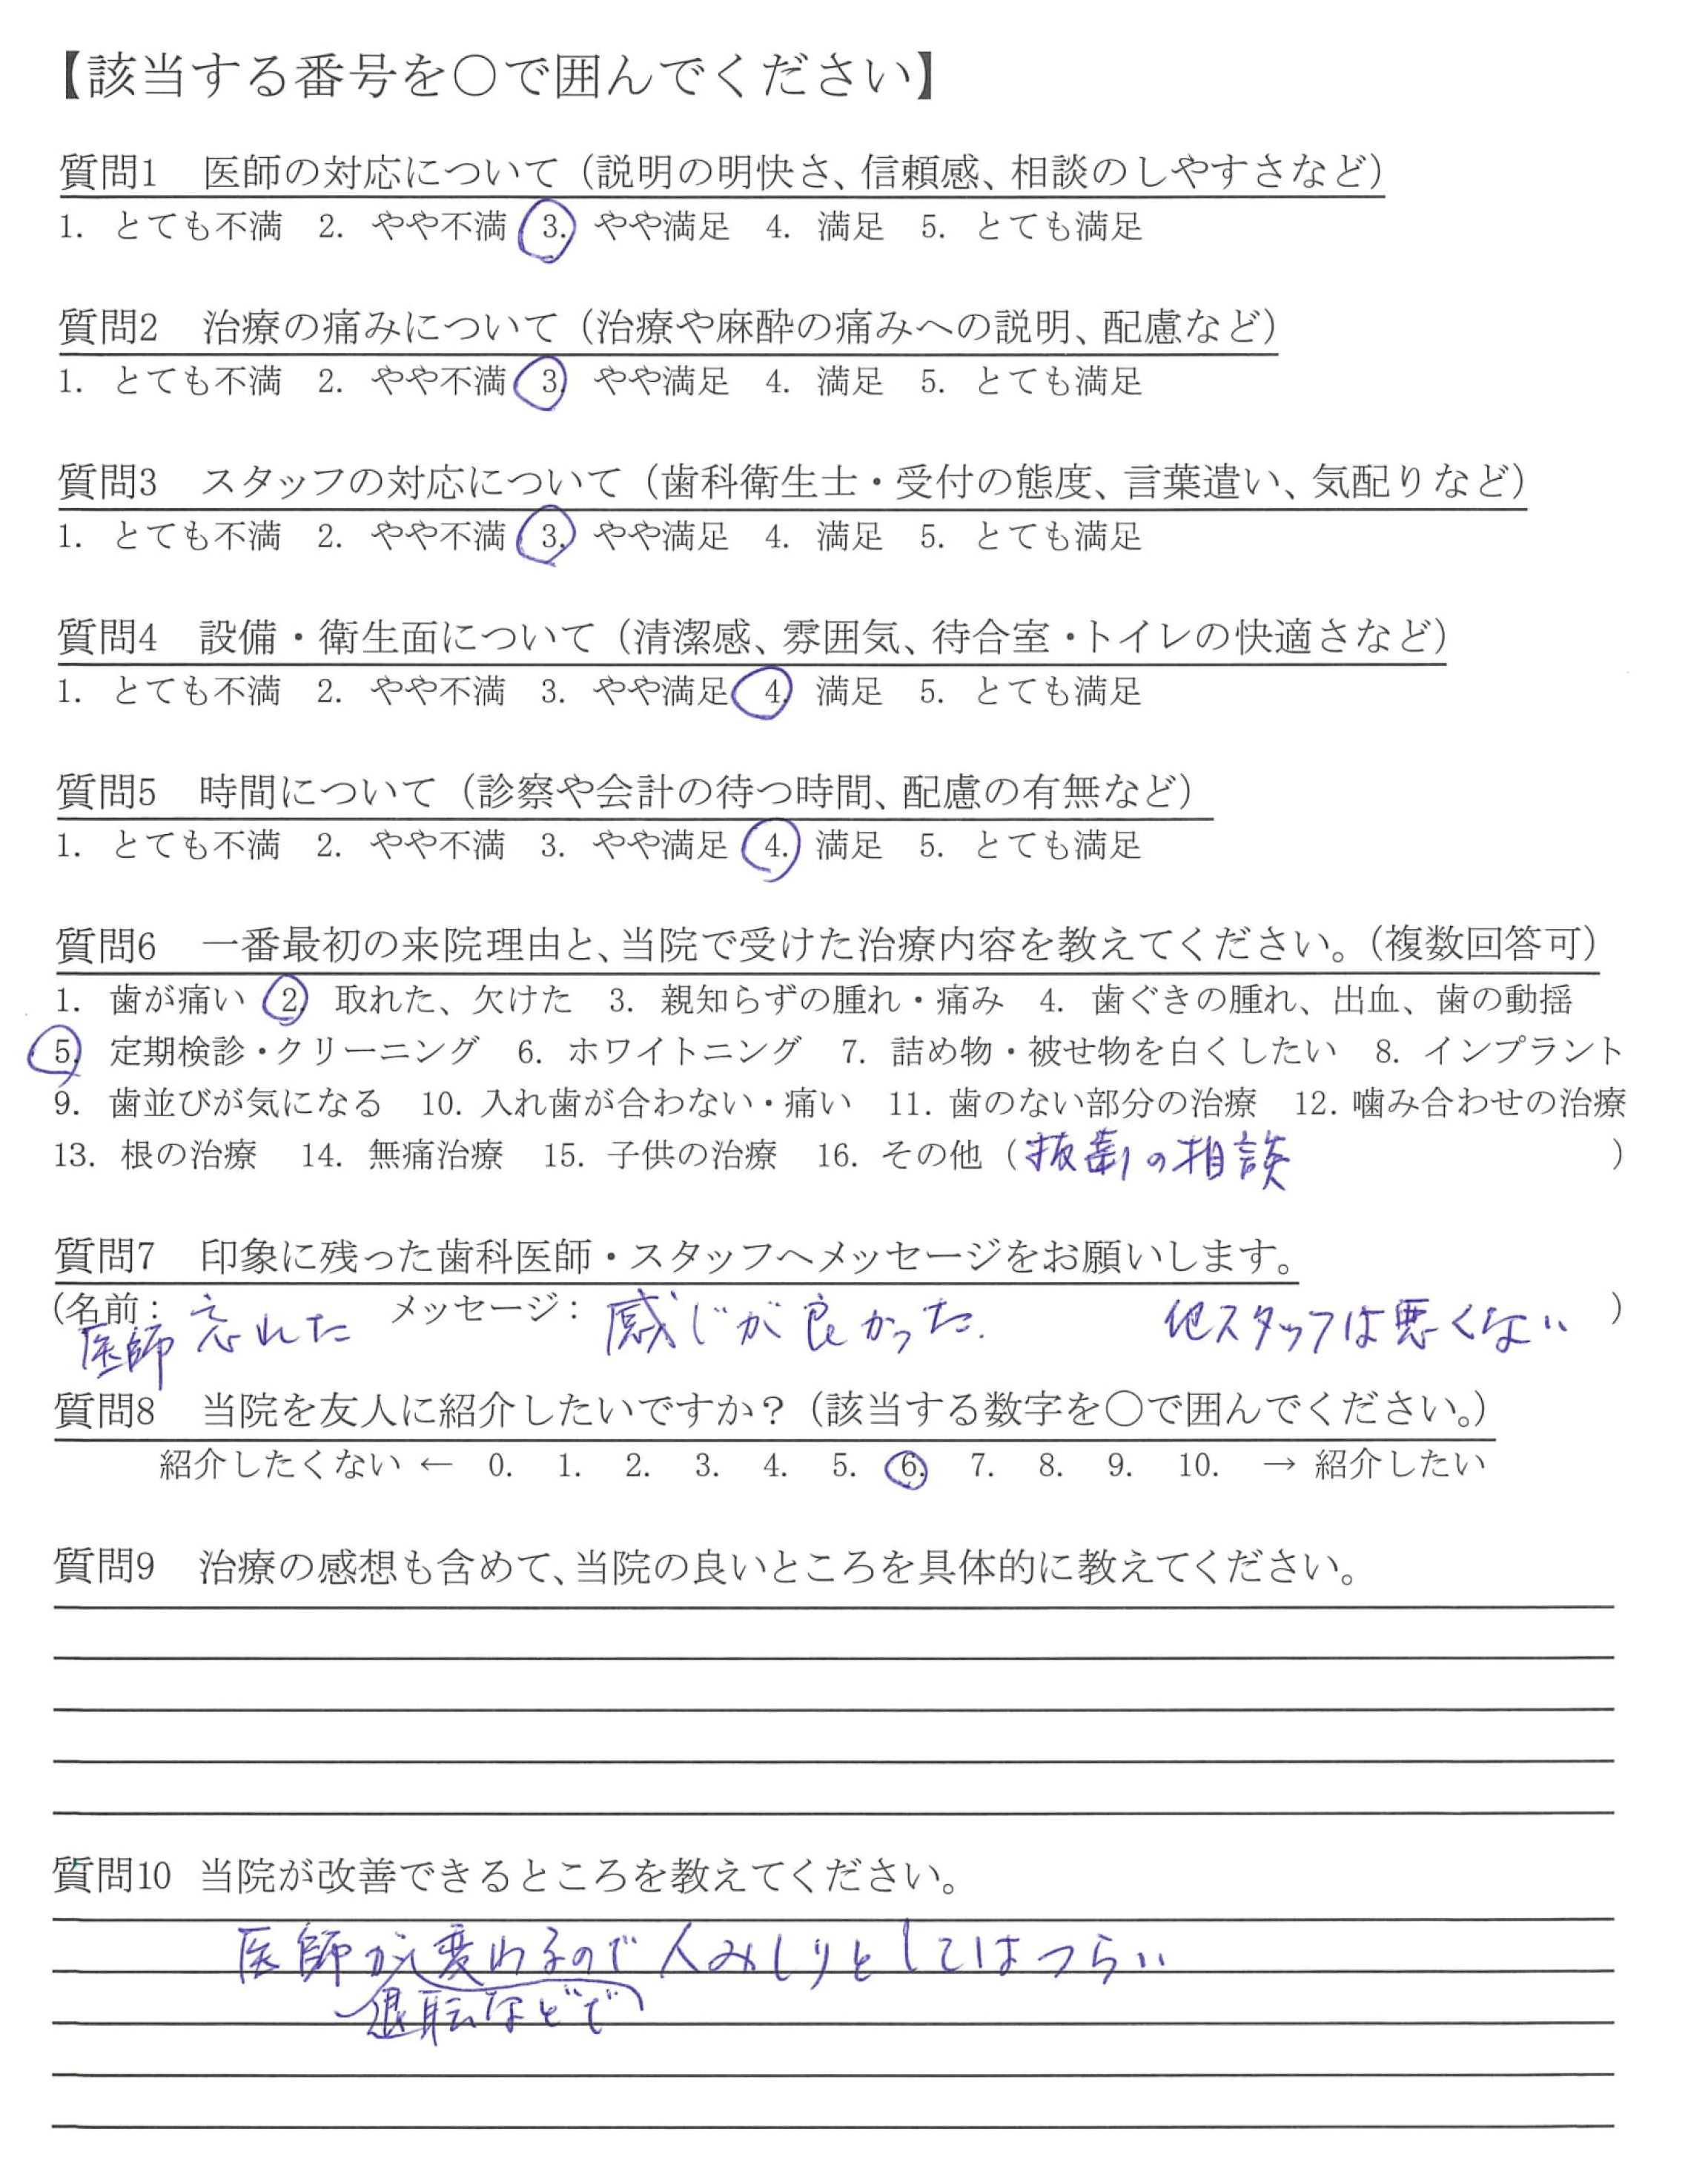 【該当する番号を〇で囲んでください】
質問1　医師の対応について（説明の明快さ、信頼感、相談のしやすさなど）
1. とても不満　2. やや不満　3. やや満足　4. 満足　5. とても満足
質問2　治療の痛みについて（治療や麻酔の痛みへの説明、配慮など）
1. とても不満　2. やや不満　3. やや満足　4. 満足　5. とても満足
質問3　スタッフの対応について（歯科衛生士・受付の態度、言葉遣い、気配りなど）
1. とても不満　2. やや不満　3. やや満足　4. 満足　5. とても満足
質問4　設備・衛生面について（清潔感、雰囲気、待合室・トイレの快適さなど）
1. とても不満　2. やや不満　3. やや満足　4. 満足　5. とても満足
質問5　時間について（診察や会計の待つ時間、配慮の有無など）
1. とても不満　2. やや不満　3. やや満足　4. 満足　5. とても満足
質問6　一番最初の来院理由と、当院で受けた治療内容を教えてください。（複数回答可）
1. 歯が痛い　2. 取れた、欠けた　3. 親知らずの腫れ・痛み　4. 歯ぐきの腫れ、出血、歯の動揺
5. 定期検診・クリーニング　6. ホワイトニング　7. 詰め物・被せ物を白くしたい　8. インプラント
9. 歯並びが気になる　10. 入れ歯が合わない・痛い　11. 歯のない部分の治療　12. 噛み合わせの治療
13. 根の治療　14. 無痛治療　15. 子供の治療　16. その他（抜歯の相談　）
質問7　印象に残った歯科医師・スタッフへメッセージをお願いします。
（名前：忘れた　メッセージ：感じが良かった.　他スタッフは悪くない　）
医師
質問8　当院を友人に紹介したいですか？（該当する数字を〇で囲んでください。）
紹介したくない ← 0.　1.　2.　3.　4.　5.　6.　7.　8.　9.　10.　→ 紹介したい
質問9　治療の感想も含めて、当院の良いところを具体的に教えてください。
質問10　当院が改善できるところを教えてください。
医師が変わるので人みしりとしてはつらい
退転などで